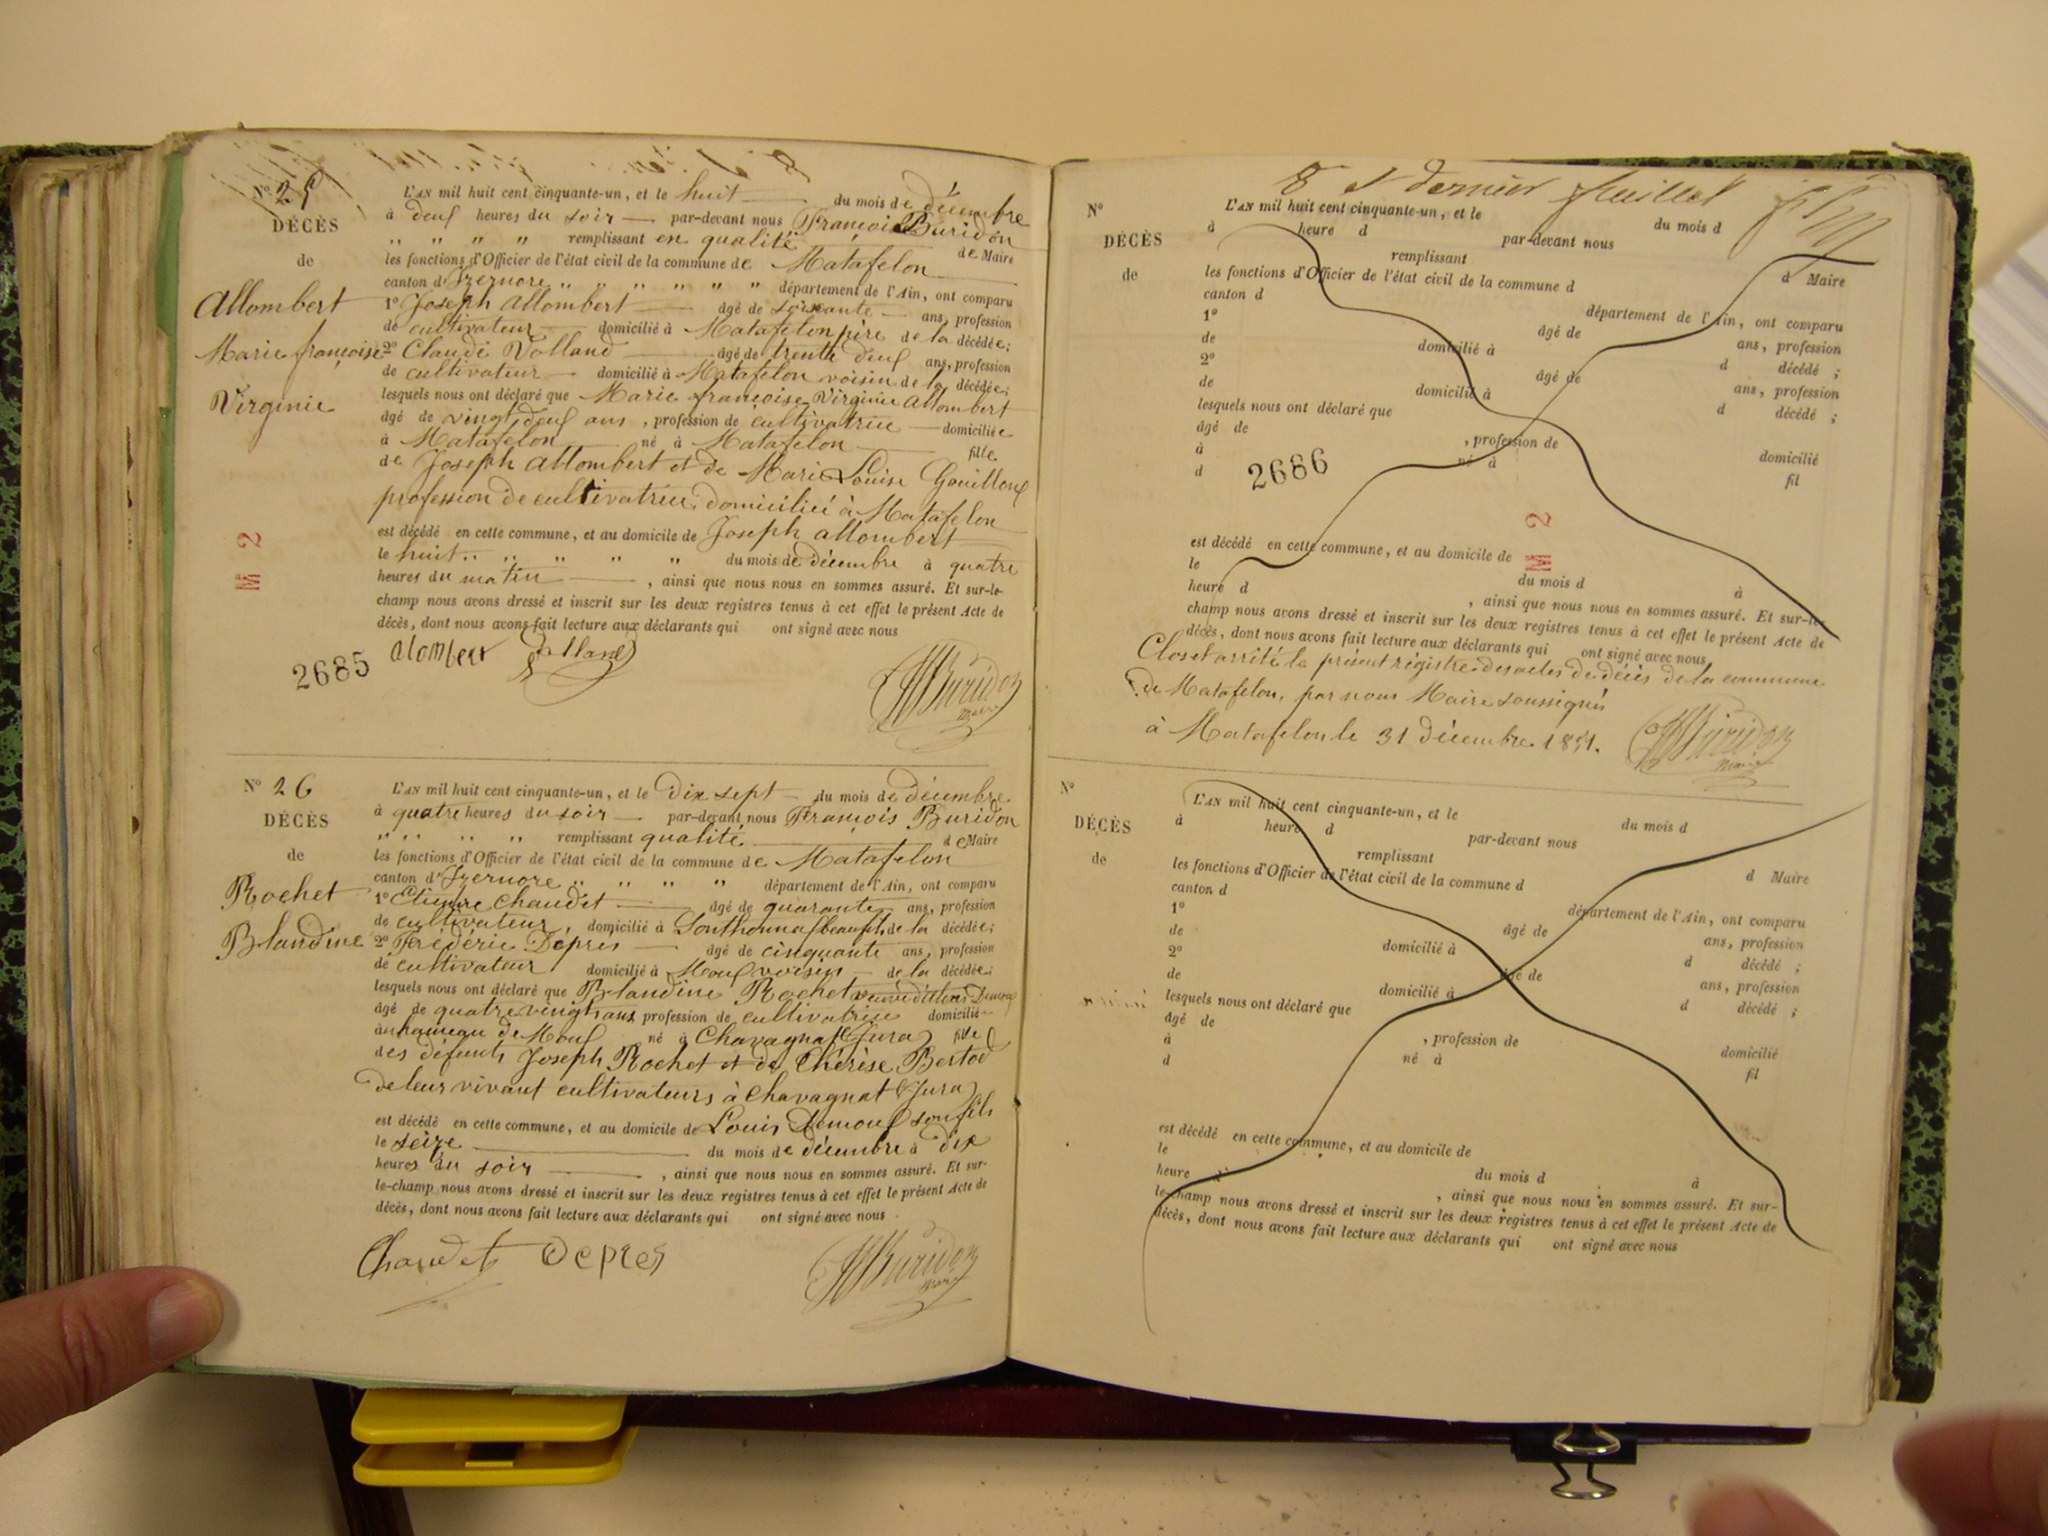 N° 25
DÉCÈS
de
Allombert
Marie françoise
Virginie
L'AN mil huit cent cinquante-un, et le huit du mois de décembre
à deux heures du soir par-devant nous François Buridon
remplissant en qualité de Maire
les fonctions d'Officier de l'état civil de la commune de Matafelon
canton d'Izernore département de l'Ain, ont comparu
1° Joseph Allombert âgé de soixante ans, profession
de cultivateur domicilié à Matafelon père de la décédée;
2° Claude Volland âgé de trente deux ans, profession
de cultivateur domicilié à Matafelon voisin de la décédée;
lesquels nous ont déclaré que Marie françoise Virginie Allombert
âgé de vingt deux ans, profession de cultivatrice domiciliée
à Matafelon né à Matafelon fille
de Joseph Allombert et de Marie Louise Gouilloux
profession de cultivatrice domicilié à Matafelon
est décédé en cette commune, et au domicile de Joseph Allombert
le huit du mois de décembre à quatre
heures du matin, ainsi que nous nous en sommes assuré. Et sur-le-
champ nous avons dressé et inscrit sur les deux registres tenus à cet effet le présent Acte de
décès, dont nous avons fait lecture aux déclarants qui ont signé avec nous
alombert Volland
Buridon
Maire
M 2
2685
N° 26
DÉCÈS
de
Rochet
Blandine
L'AN mil huit cent cinquante-un, et le dix sept du mois de décembre
à quatre heures du soir par-devant nous François Buridon
remplissant qualité de Maire
les fonctions d'Officier de l'état civil de la commune de Matafelon
canton d'Izernore département de l'Ain, ont comparu
1° Etienne Chaudet âgé de quarante ans, profession
de cultivateur domicilié à Sonthonnax de la décédée;
2° Frédéric Dépres âgé de cinquante ans, profession
de cultivateur domicilié à Moux voisin de la décédée;
lesquels nous ont déclaré que Blandine Rochet veuve
âgé de quatre vingt ans profession de cultivatrice domicilié
au hameau de Moux né à Chavagnat (Jura) fille
des défunts Joseph Rochet et de Thérèse Bertod
de leur vivant cultivateurs à Chavagnat (Jura)
est décédé en cette commune, et au domicile de Louis Demoux son fils
le seize du mois de décembre à dix
heures du soir, ainsi que nous nous en sommes assuré. Et sur-
le-champ nous avons dressé et inscrit sur les deux registres tenus à cet effet le présent Acte de
décès, dont nous avons fait lecture aux déclarants qui ont signé avec nous.
Chaudet Depres
Buridon
Maire
8 et dernier feuillet
N°
DÉCÈS
de
L'AN mil huit cent cinquante-un, et le du mois d
à heure d par-devant nous
remplissant d Maire
les fonctions d'Officier de l'état civil de la commune d
canton d département de l'Ain, ont comparu
1° âgé de ans, profession
de domicilié à d décédé ;
2° âgé de ans, profession
de domicilié à d décédé ;
lesquels nous ont déclaré que
âgé de , profession de domicilié
à né à fil
d
2686
M 2
est décédé en cette commune, et au domicile de
le du mois d à
heure d , ainsi que nous nous en sommes assuré. Et sur-le-
champ nous avons dressé et inscrit sur les deux registres tenus à cet effet le présent Acte de
décès, dont nous avons fait lecture aux déclarants qui ont signé avec nous
Clos et arrêté le présent régistre des actes de décès de la commune
de Matafelon, par nous Maire soussigné
à Matafelon le 31 décembre 1851.
Buridon
Maire
N°
DÉCÈS
de
L'AN mil huit cent cinquante-un, et le du mois d
à heure d par-devant nous
remplissant d Maire
les fonctions d'Officier de l'état civil de la commune d
canton d département de l'Ain, ont comparu
1° âgé de ans, profession
de domicilié à d décédé ;
2° âgé de ans, profession
de domicilié à d décédé ;
lesquels nous ont déclaré que
âgé de , profession de domicilié
à né à fil
d
est décédé en cette commune, et au domicile de
le du mois d à
heure d , ainsi que nous nous en sommes assuré. Et sur-
le-champ nous avons dressé et inscrit sur les deux registres tenus à cet effet le présent Acte de
décès, dont nous avons fait lecture aux déclarants qui ont signé avec nous